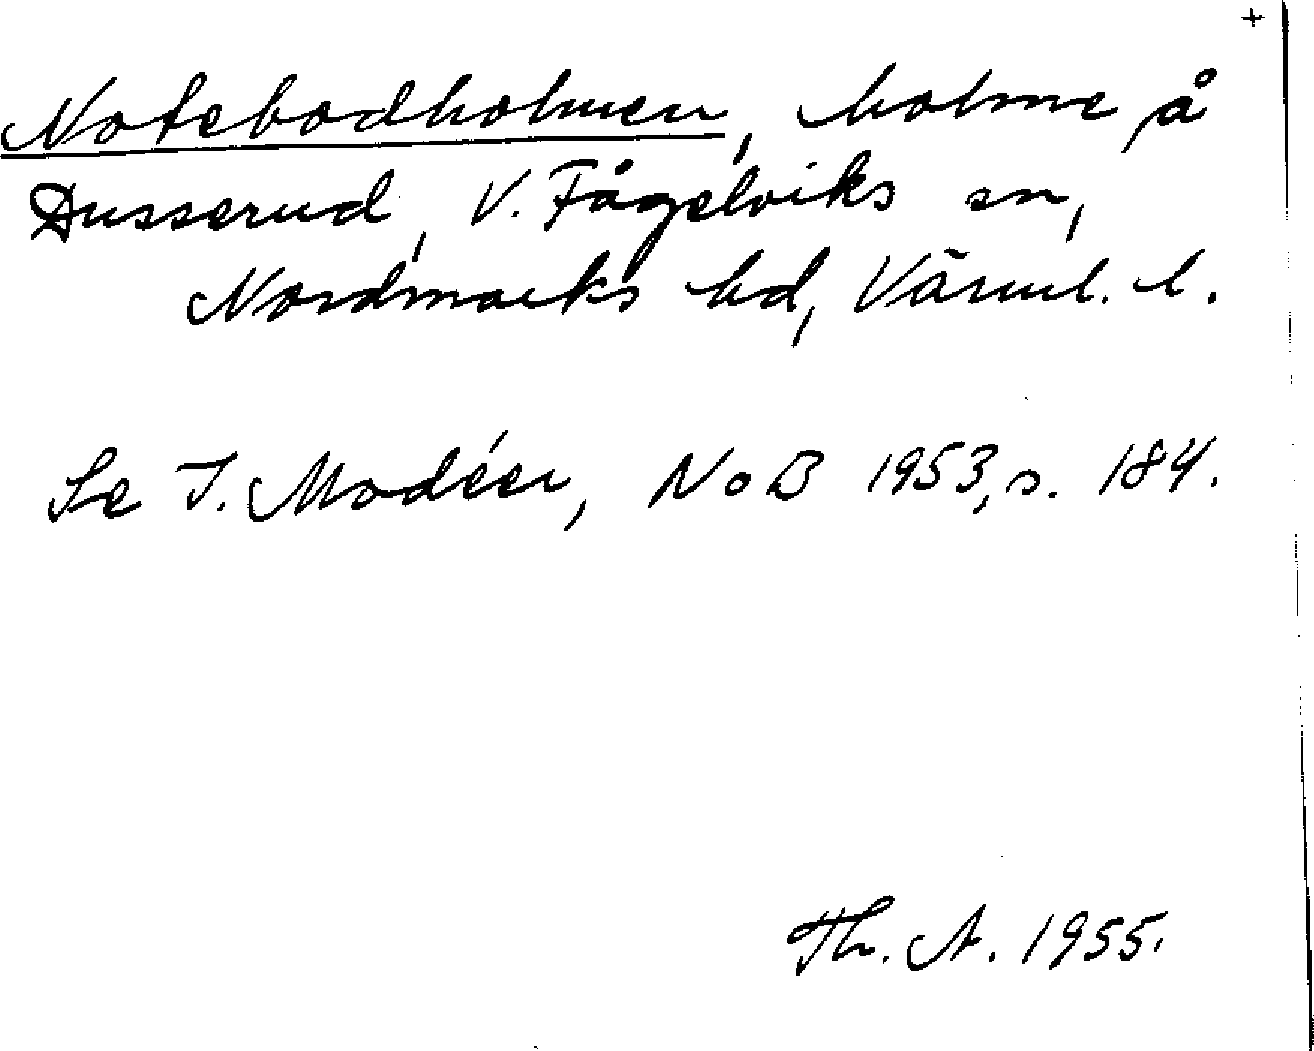 +
Notebodholmen, holme å
Dusserud, V. Fågelviks sn,
Nordmarks hd, Värml. l.
Se I. Modéer, NoB 1953, s. 184.
Th. A. 1955.